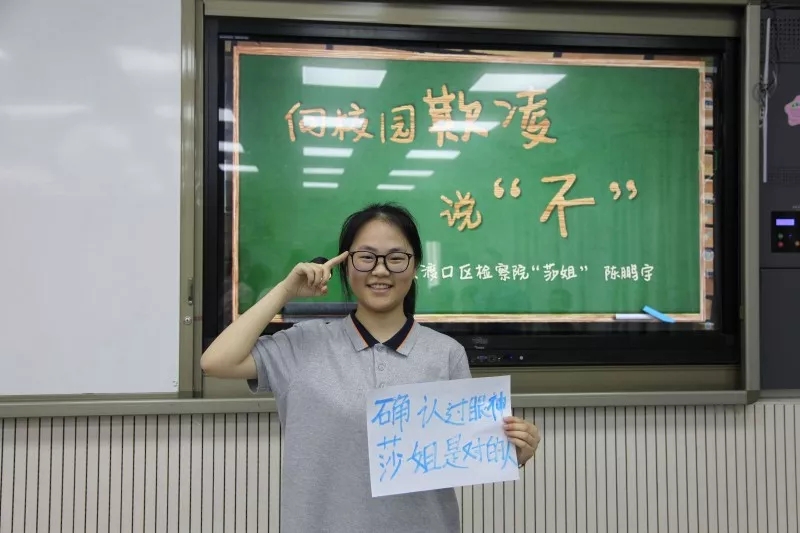 向校园欺凌
说“不”
渡口区检察院“莎姐” 陈鹏宇
确认过眼神
莎姐是对的人